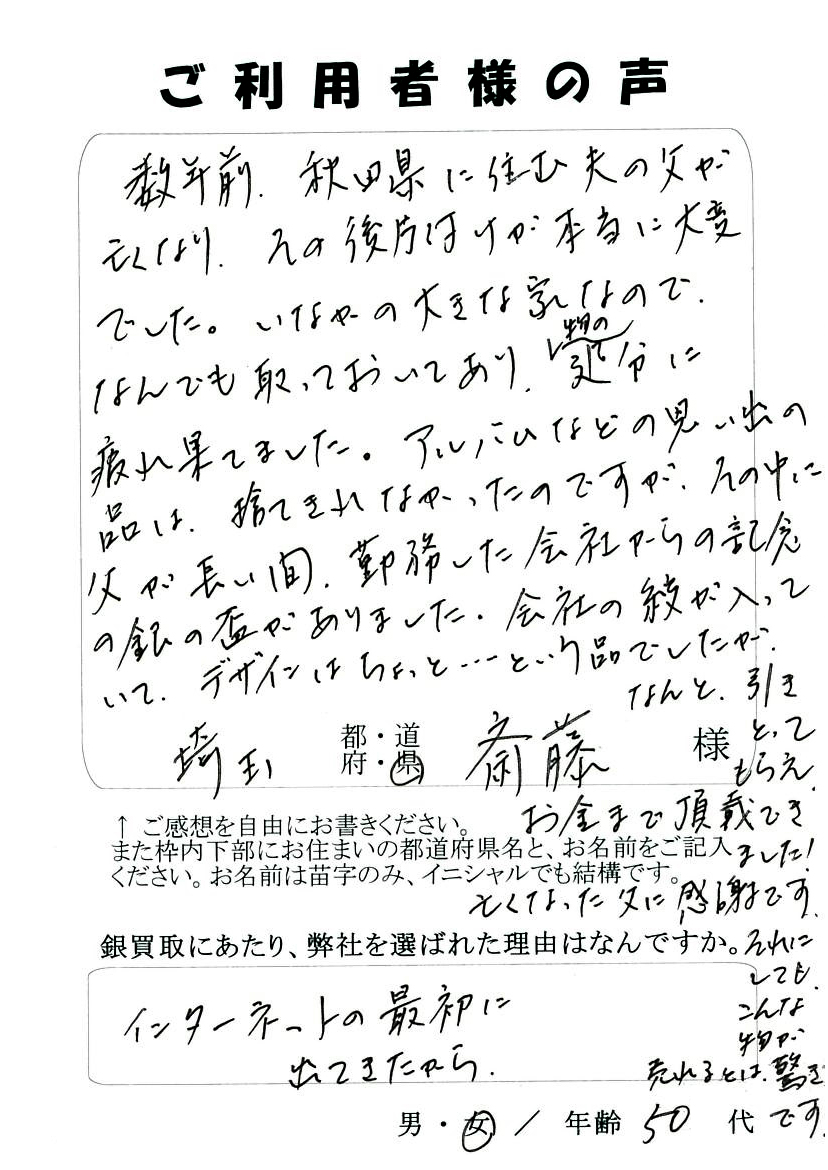 ご利用者様の声
数年前、秋田県に住む夫の父が
亡くなり、その後片付けが本当に大変
でした。いなかの大きな家なので、
なんでも取っておいてあり、物の処分に
疲れ果てました。アルバムなどの思い出の
品は、捨てきれなかったのですが、その中に
父が長い間、勤務した会社からの記念
の銀の盃がありました。会社の紋が入って
いて、デザインはちょっと…という品でしたが、
なんと、引き
とって
もらえ、
お金まで頂戴でき
ました!
亡くなった父に感謝です。
それに
しても、
こんな
物が
売れるとは、驚き
です。
埼玉 都・道府・県 斎藤 様
↑ ご感想を自由にお書きください。
また枠内下部にお住まいの都道府県名と、お名前をご記入
ください。お名前は苗字のみ、イニシャルでも結構です。
銀買取にあたり、弊社を選ばれた理由はなんですか。
インターネットの最初に
出てきたから、
男・女 / 年齢 50 代